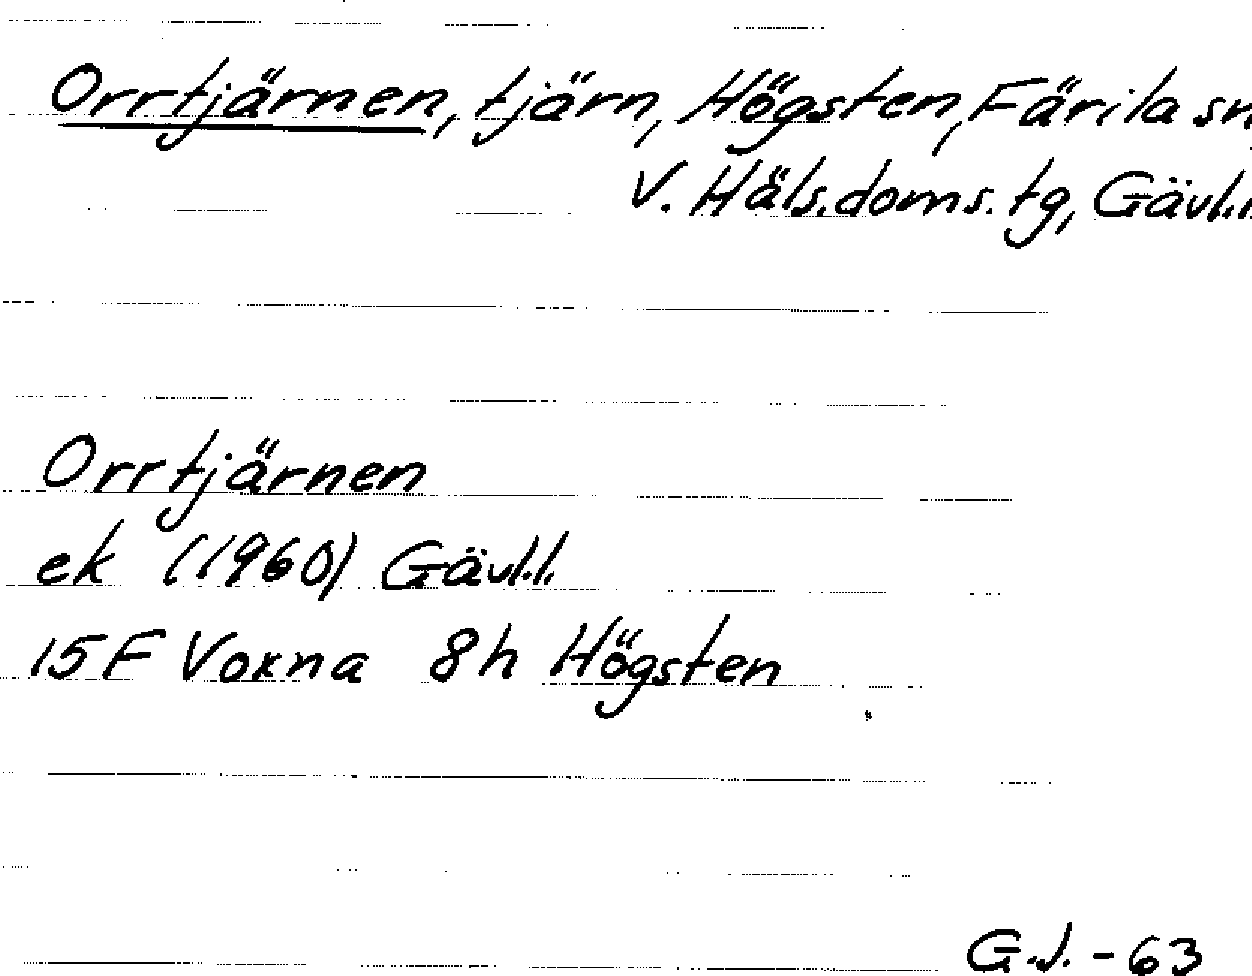 Orrtjärnen, tjärn, Högsten, Färila sn,
V. Häls. doms. tg, Gävl.l.
Orrtjärnen
ek (1960) Gävl.l.
15F Voxna 8h Högsten
G.J. - 63